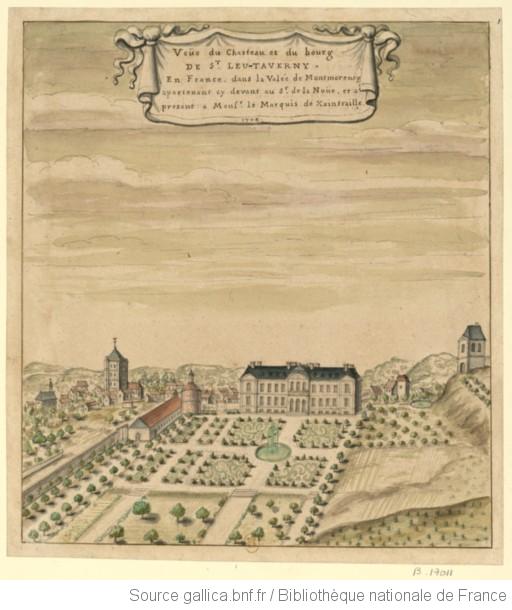 Veüe du Chasteau et du bourg
DE St. LEU-TAVERNY.
En France, dans la Valée de Montmorency
apartenant cy devant au Sr. de la Noüe, et a
present a Monsr. le Marquis de Xaintraille
1708
B. 17011
Source gallica.bnf.fr / Bibliothèque nationale de France